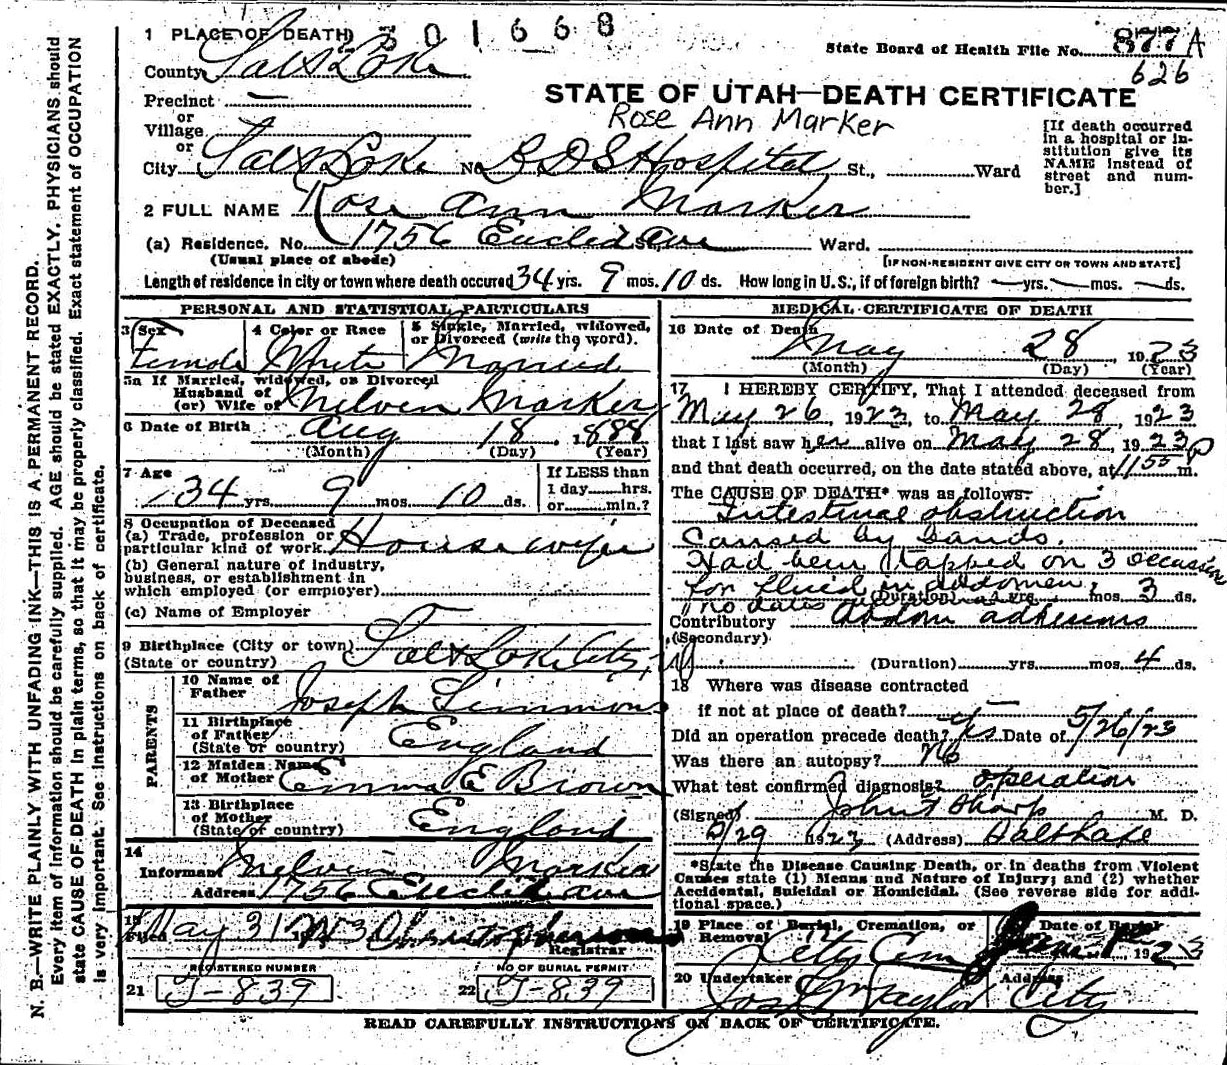 301668
1 PLACE OF DEATH
State Board of Health File No. 877 A
626
County Salt Lake
STATE OF UTAH—DEATH CERTIFICATE
Rose Ann Marker
Precinct
or
Village
or
City Salt Lake No. L D S Hospital St., Ward
[If death occurred in a hospital or institution give its NAME instead of street and number.]
2 FULL NAME Rose Ann Marker
(a) Residence, No. 1756 Euclid Ave St., Ward.
(Usual place of abode) [IF NON-RESIDENT GIVE CITY OR TOWN AND STATE]
Length of residence in city or town where death occured 34 yrs. 9 mos. 10 ds. How long in U. S., if of foreign birth? — yrs. — mos. — ds.
PERSONAL AND STATISTICAL PARTICULARS
3 Sex 4 Color or Race 5 Single, Married, widowed, or Divorced (write the word).
Female White Married
5a If Married, widowed, or Divorced
Husband of
(or) Wife of Melvin Marker
6 Date of Birth Aug 18, 1888
(Month) (Day) (Year)
7 Age If LESS than
34 yrs. 9 mos. 10 ds. 1 day hrs.
or min.?
8 Occupation of Deceased
(a) Trade, profession or
particular kind of work. Housewife
(b) General nature of industry,
business, or establishment in
which employed (or employer)
(c) Name of Employer
9 Birthplace (City or town) Salt Lake City
(State or country)
PARENTS
10 Name of
Father Joseph Simmons
11 Birthplace
of Father England
(State or country)
12 Maiden Name
of Mother Emma E Brown
13 Birthplace
of Mother England
(State or country)
14
Informant Melvin Marker
Address 1756 Euclid Ave
15
Filed May 31 1923 Christopherson
Registrar
REGISTERED NUMBER NO OF BURIAL PERMIT
21 J-839 22 J-839
MEDICAL CERTIFICATE OF DEATH
16 Date of Death May 28, 1923
(Month) (Day) (Year)
17 I HEREBY CERTIFY, That I attended deceased from
May 26, 1923, to May 28, 1923
that I last saw her alive on May 28, 1923
and that death occurred, on the date stated above, at 1155 P m.
The CAUSE OF DEATH* was as follows:
Intestinal obstruction
Caused by bands.
Had been tapped on 3 occasion
for fluid in abdomen,
no dates
(Duration) yrs. mos. 3 ds.
Contributory Abdom adhesions
(Secondary)
(Duration) yrs. mos. 4 ds.
18 Where was disease contracted
if not at place of death? —
Did an operation precede death? Yes Date of 5/26/23
Was there an autopsy? No
What test confirmed diagnosis? operation
(Signed) John F Sharp M. D.
5/29 1923 (Address) Salt Lake
*State the Disease Causing Death, or in deaths from Violent
Causes state (1) Means and Nature of Injury; and (2) whether
Accidental, Suicidal or Homicidal. (See reverse side for additional space.)
19 Place of Burial, Cremation, or Removal Date of Burial
City Cem June 1 1923
20 Undertaker Address
Jos Wm Taylor City
READ CAREFULLY INSTRUCTIONS ON BACK OF CERTIFICATE.
N. B.—WRITE PLAINLY WITH UNFADING INK—THIS IS A PERMANENT RECORD.
Every item of information should be carefully supplied. AGE should be stated EXACTLY. PHYSICIANS should
state CAUSE OF DEATH in plain terms, so that it may be properly classified. Exact statement of OCCUPATION
is very important. See instructions on back of certificate.